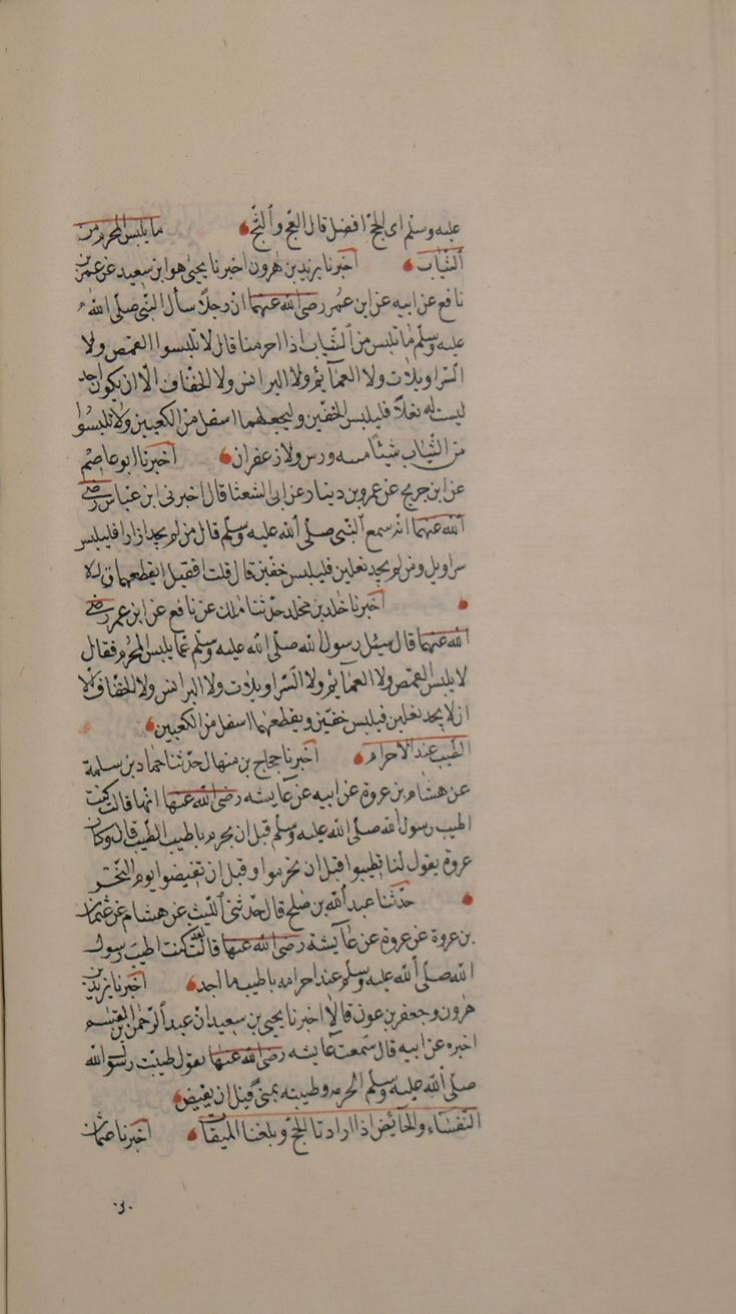 عليه وسلم اى الحج افضل قال العج والثج ما يلبس المحرم من
الثياب اخبرنا يزيد بن هرون اخبرنا يحيى هو ابن سعيد عن عمر بن
نافع عن ابيه عن ابن عمر رضى الله عنهما ان رجلا سأل النبى صلى الله
عليه وسلم ما نلبس من الثياب اذا احرمنا قال لا تلبسوا القمص ولا
السراويلات ولا العمآئم ولا البرانس ولا الخفاف الا ان يكون احد
ليست له نعلان فليلبس الخفين وليجعلهما اسفل من الكعبين ولا تلبسوا
من الثياب شيئا مسه ورس ولا زعفران اخبرنا ابو عاصم
عن ابن جريج عن عمرو بن دينار عن ابى الشعثا قال اخبرنى ابن عباس رضى
الله عنهما انه سمع النبى صلى الله عليه وسلم قال من لم يجد ازارا فليلبس
سراويل ومن لم يجد نعلين فليلبس خفين قال قلت افقيل ايقطعهما قال لا
اخبرنا خلد بن مخلد حدثنا ملك عن نافع عن ابن عمر رضى
الله عنهما قال سئل رسول الله صلى الله عليه وسلم عما يلبس المحرم فقال
لا يلبس القمص ولا العمآئم ولا السراويلات ولا البرانس ولا الخفاف الا
ان لا يجد نعلين فيلبس خفين ويقطعهما اسفل من الكعبين
الطيب عند الاحرام اخبرنا حجاج بن منهال حدثنا حماد بن سلمة
عن هشام بن عروة عن ابيه عن عايشه رضى الله عنها انها قالت كنت
اطيب رسول الله صلى الله عليه وسلم قبل ان يحرم باطيب الطيب قال وكان
عروة يقول لنا تطيبوا قبل ان تحرموا وقبل ان تفيضوا يوم النحر
حدثنا عبد الله بن صلح قال حدثنى الليث عن هشام عن عثمان
بن عروة عن عروة عن عآيشة رضى الله عنها قالت لقد كنت اطيب رسول
الله صلى الله عليه وسلم عند احرامه باطيب ما اجد اخبرنا يزيد بن
هرون وجعفر بن عون قالا اخبرنا يحيى بن سعيد ان عبد الرحمن بن القسم
اخبره عن ابيه قال سمعت عآيشه رضى الله عنها تقول طيبت رسول الله
صلى الله عليه وسلم لحرمه وطيبته بمنى قبل ان يفيض
النفسآء والحآيض اذا ارادتا الحج وبلغتا الميقات اخبرنا عثمان